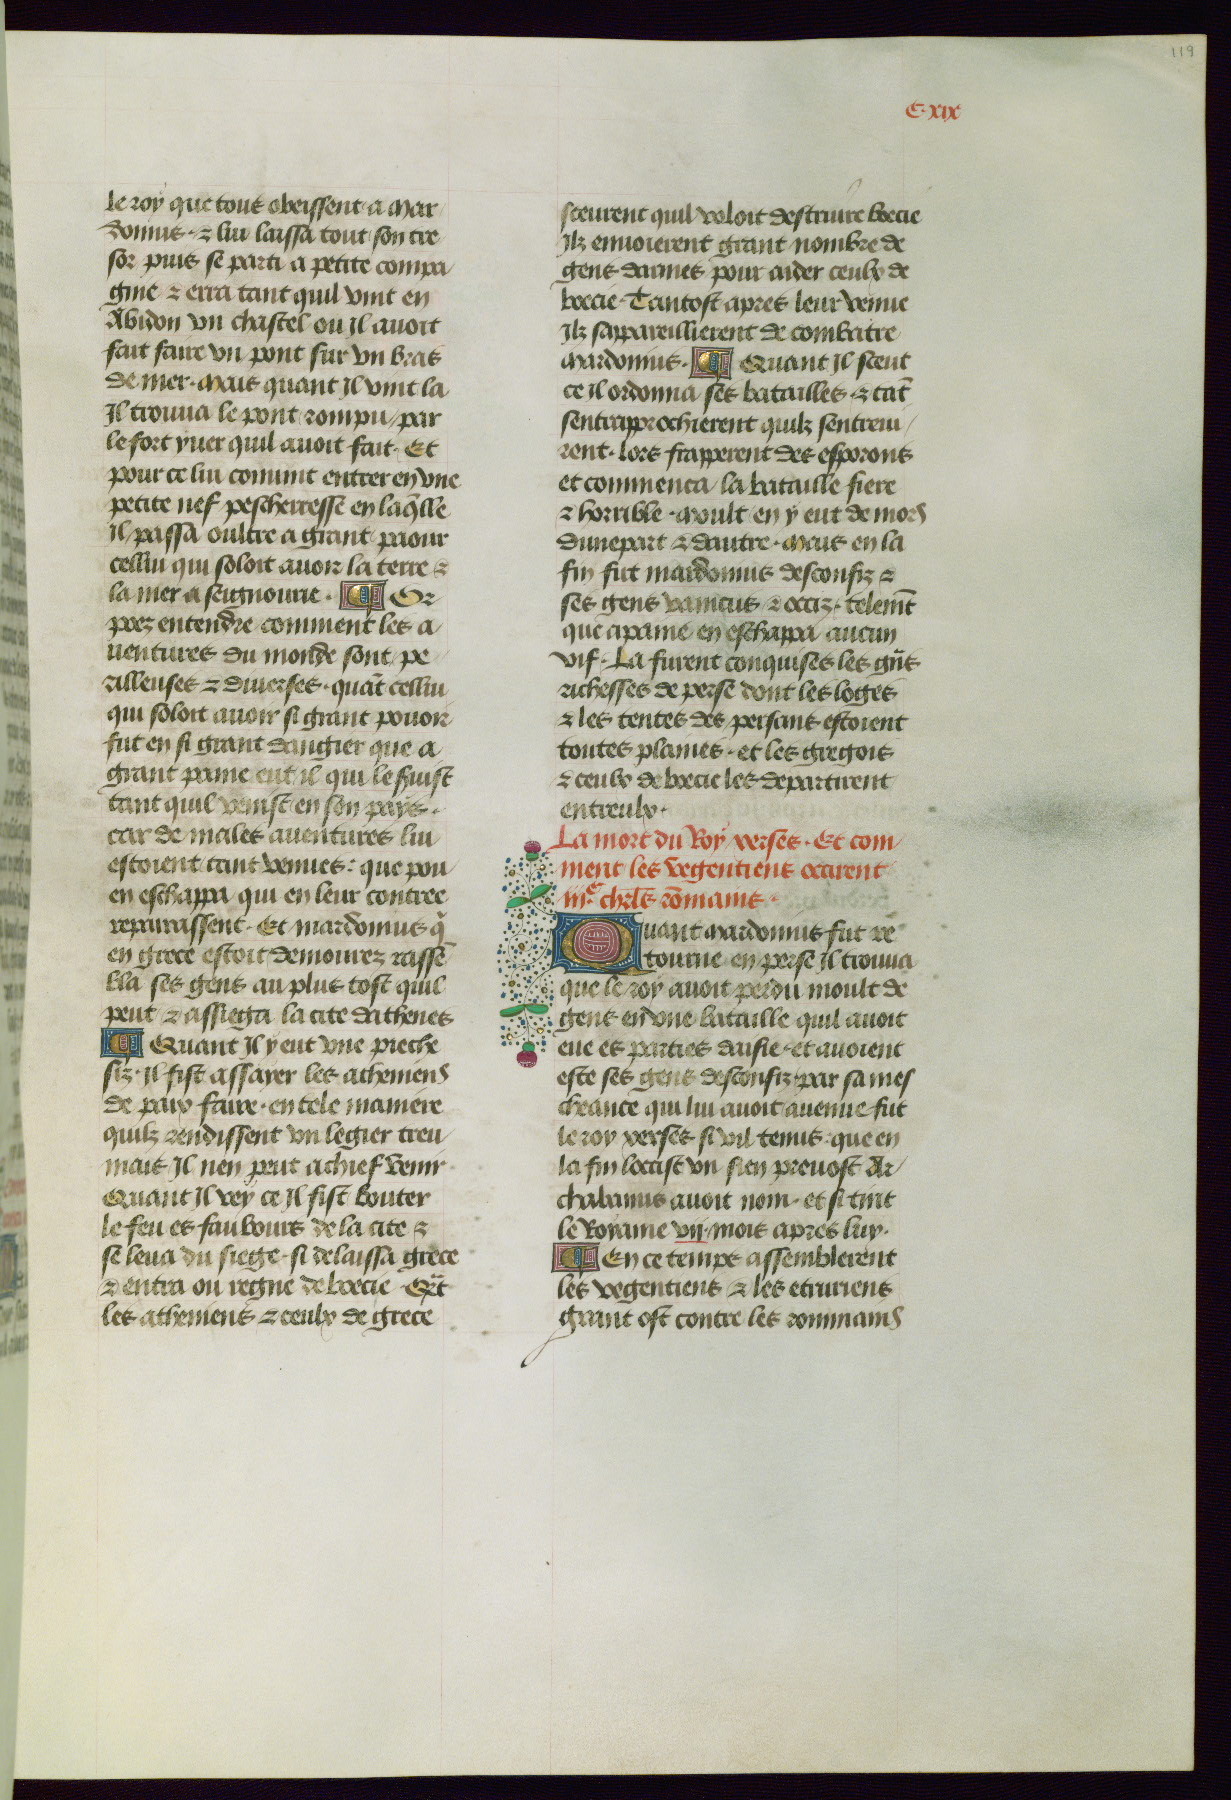 119
C. xix
le roy que tout obeissent a mar
donius · ⁊ lui laissa tout son tre
sor puis se parti a petite compa
gnie ⁊ erra tant quil vint en
Abidon vn chastel ou il auoit
fait faire vn pont sur vn bras
de mer · mais quant Il vint la
Il trouua le pont rompu / par
le fort yuer quil auoit fait · Et
pour ce lui conuint entrer en vne
petite nef pescherresse en laq̃lle
Il passa oultre a grant paour
cellui qui soloit auoir la terre ⁊
la mer a seignourie · ¶ Or
poez entendre comment les a/
uentures du monde sont pe/
rilleuses ⁊ diuerses · quãt cellui
qui soloit auoir si grant pouoir
fut en si grant dangier que a
grant paine eut il qui le suist
tant quil venist en son pays ·
car de males auentures lui
estoient tant venues : que pou
en eschappa qui en leur contree
repairassent · Et mardonius q̃
en grece estoit demourez rassẽ
bla ses gens au plus tost quil
peut ⁊ assiega la cite dathenes
¶ Quant Il y eut vne pieche
siz · il fist assayer les atheniens
de paix faire · en tele maniere
quilz rendissent vn legier treu/
mais Il nen peut a chief venir ·
Quant Il vey ce Il fist bouter
le feu es faubours de la cite ⁊
se leua du siege · si delaissa grece
⁊ entra ou regne de boecie · Qũt
les atheniens ⁊ ceulx de grece
sceurent quil voloit destruire boecie
Ilz enuoierent grant nombre de
gens darmes pour aider ceulx de
boecie · Tantost apres leur venue
Ilz sappareillierent de combatre
mardonius · ¶ Quant Il sceut
ce il ordonna ses batailles · ⁊ tãt
sentrapprochierent quilz sentreui/
rent · lors frapperent des esporons
et commenca / la bataille fiere
⁊ horrible · moult en y eut de mors
dune part ⁊ dautre · mais en la
fin fut mardonius desconfiz ⁊
ses gens vaincus ⁊ occiz · telemẽt
que a paine en eschappa aucun
vif · La furent conquises les grãs
richesses de perse dont les loges
⁊ les tentes des persans estoient
toutes plaines · et les gregois
⁊ ceulx de boecie les departirent
entreulx ·
La mort du Roy xerses · Et com/
ment les vegentiens occirent
iijᶜ chr̃ls rõmains ·
Quant mardonius fut re
tourne en perse Il trouua
que le roy auoit perdu moult de
gens en vne bataille quil auoit
eue es parties daisie · et auoient
este ses gens desconfiz · par sa mes
cheance qui lui auoit auenue fut
le roy xerses si vil tenus · que en
la fin loccist vn sien preuost Ar/
chabanus auoit nom · et si tint
le Royame vij · mois apres luy ·
¶ En ce temps assemblerent
les vegentiens ⁊ les etruriens
grant ost contre les rommains